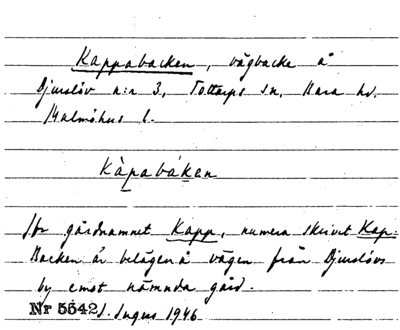 Kappabacken, vägbacke å
Djurslöv n:r 3, Tottarps sn, Bara hd.
Malmöhus l.
Kàpabákan
Jfr gårdnamnet Kapp, numera skrivet Kap.
Backen är belägen å vägen från Djurslövs
by emot nämnda gård.
Nr 5542. Ingers 1946